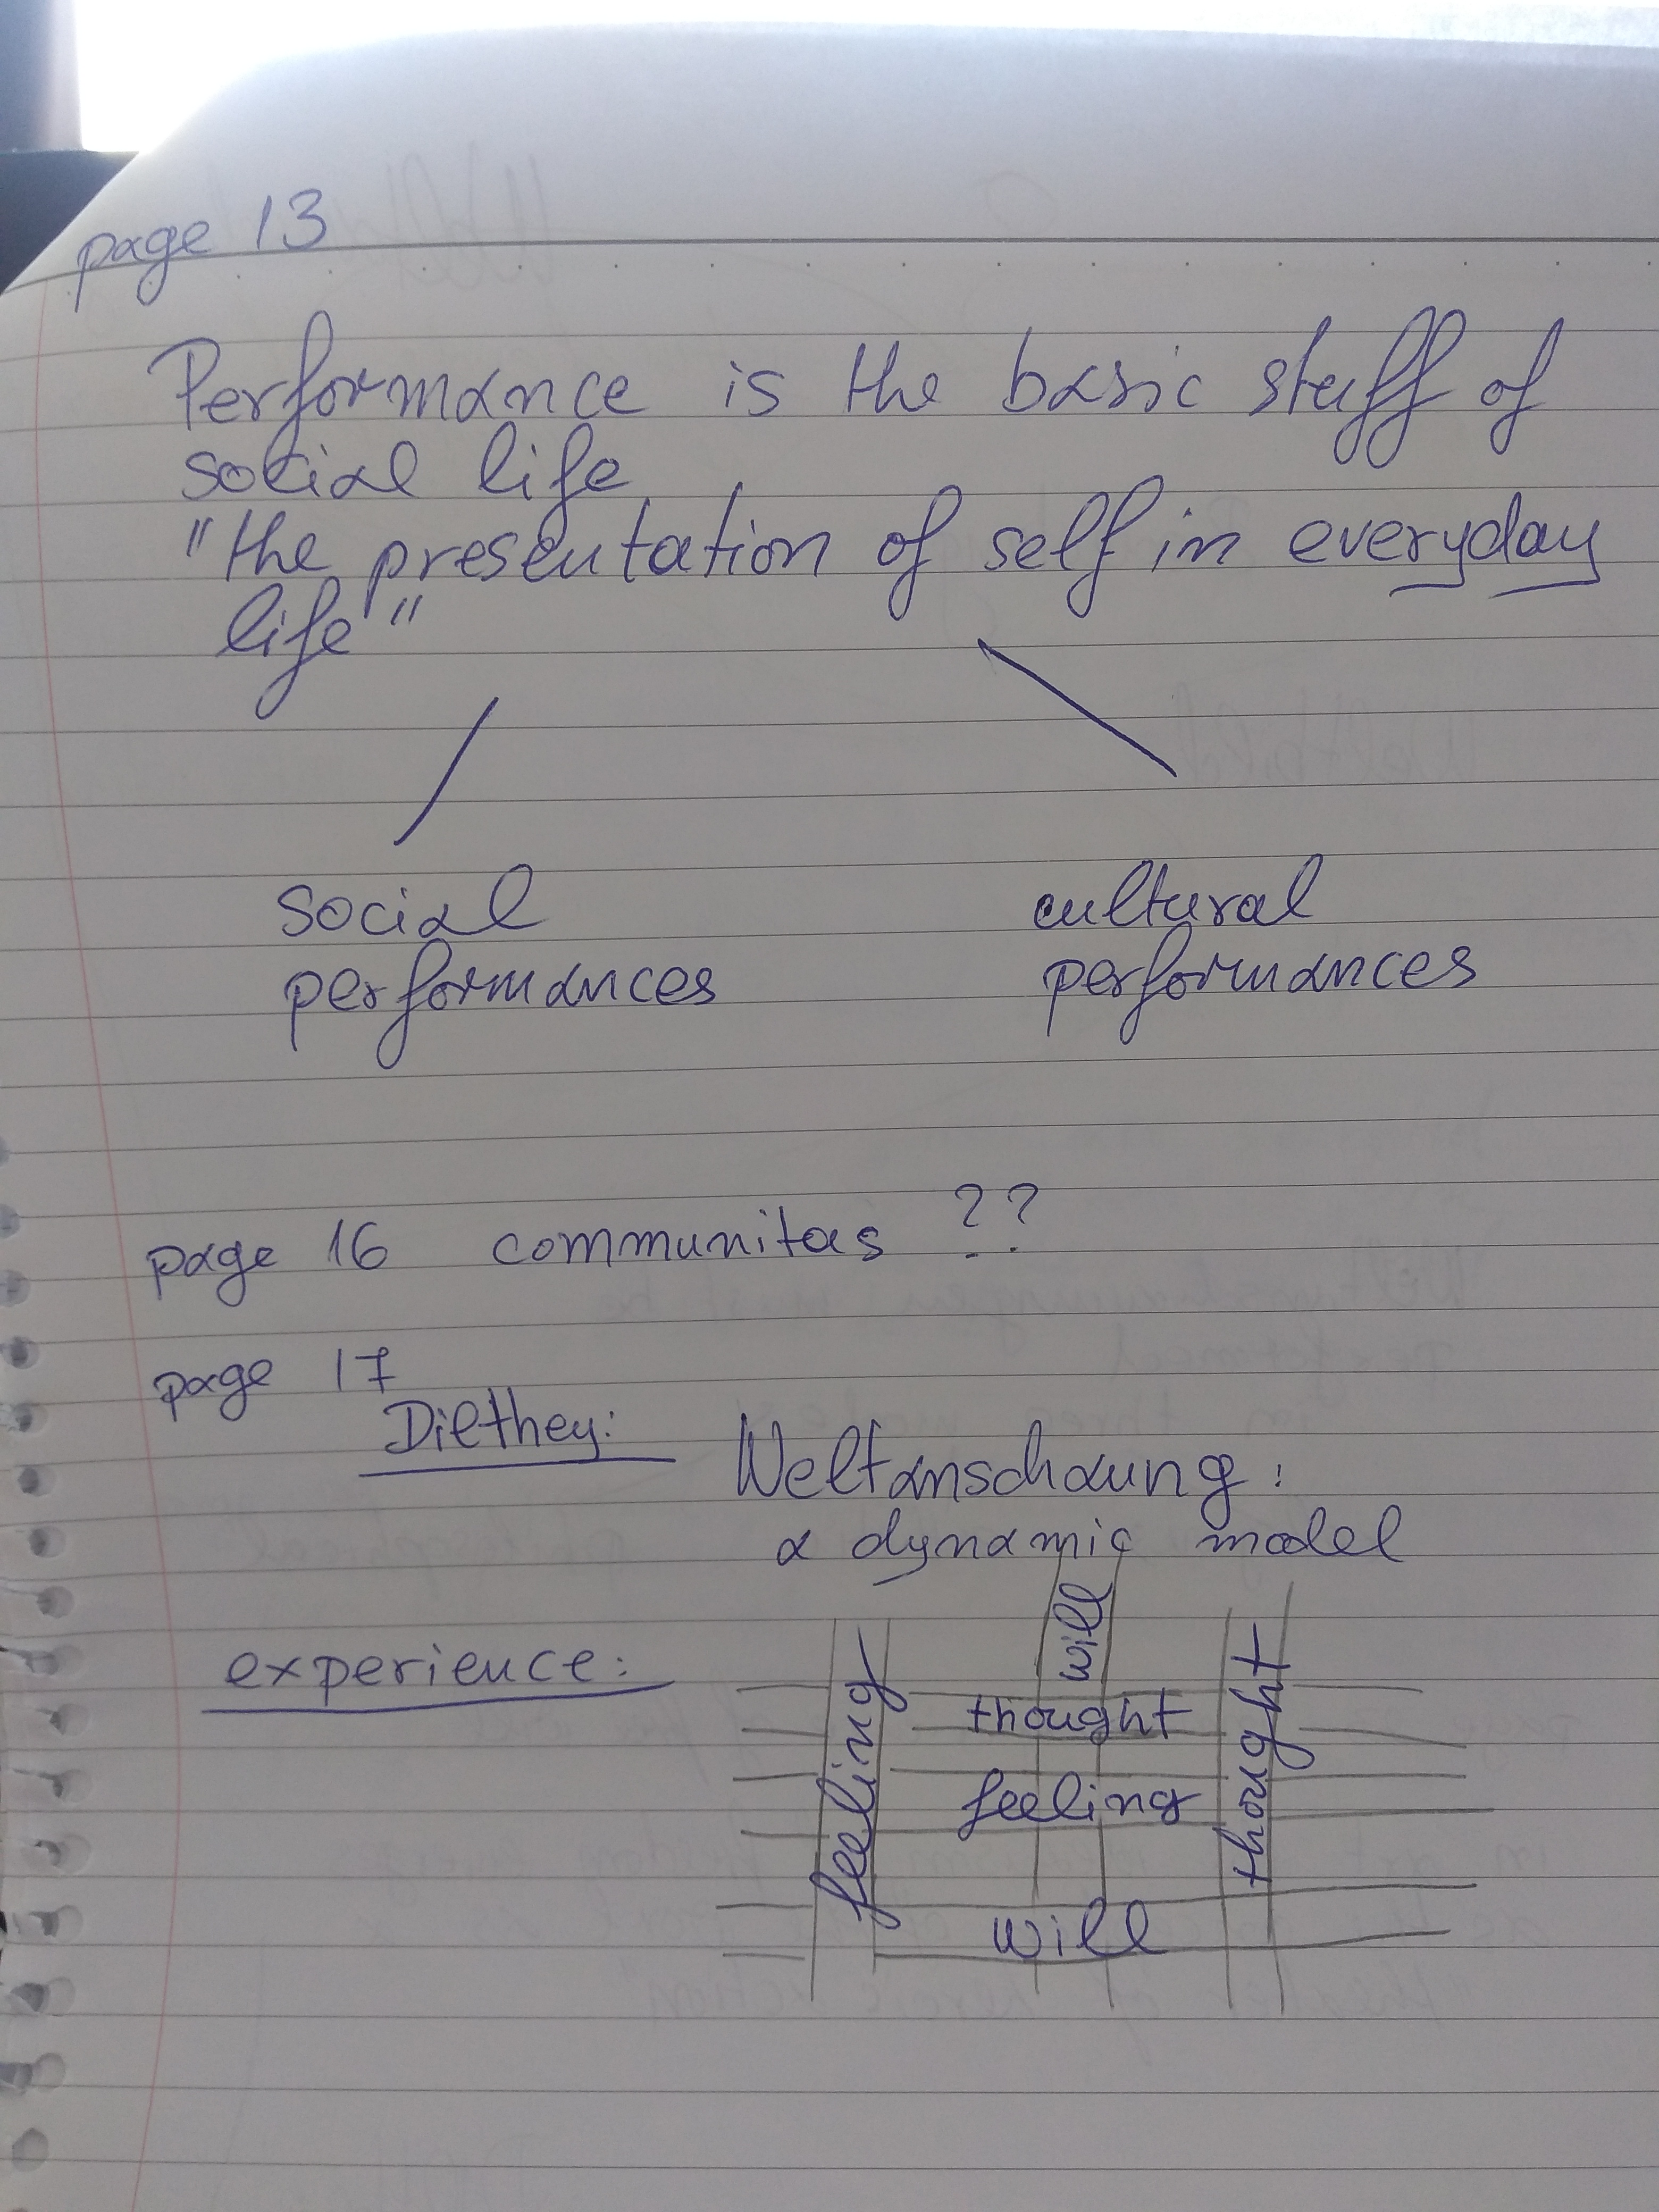 page 13
Performance is the basic stuff of
social life
"the presentation of self in everyday
life"
social
performances
cultural
performances
page 16 communitas ??
page 17
Dilthey:
Weltanschauung:
a dynamic model
experience:
feeling
will
thought
thought
feeling
will